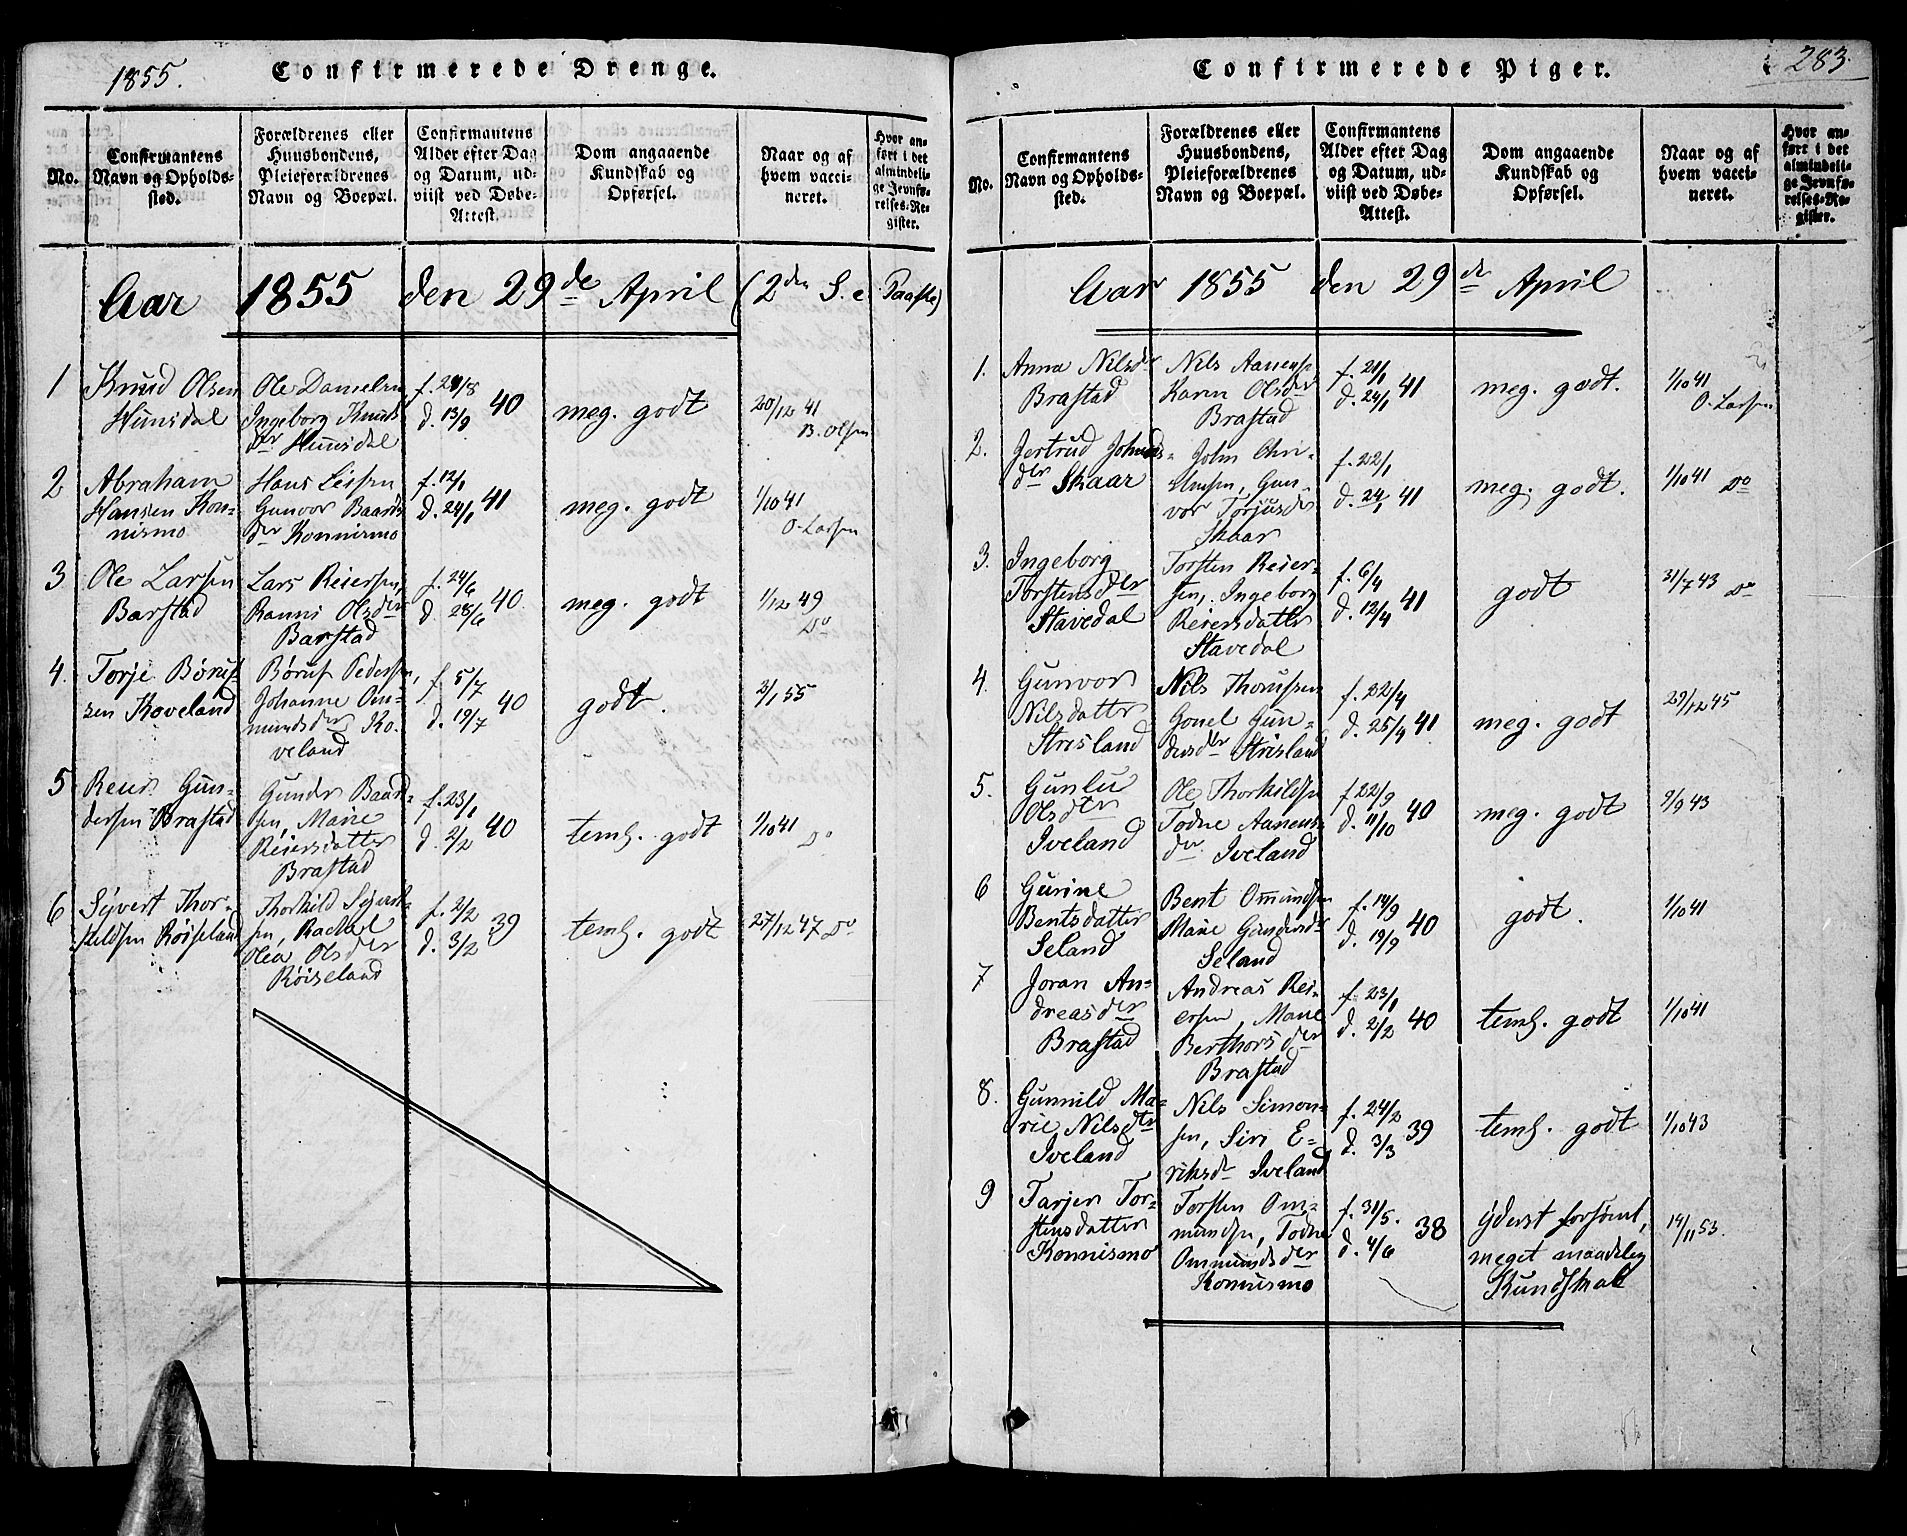 1855.
Confirmerede Drenge.
No.
Confirmantens
Navn og Opholds-
sted.
Forældrenes eller
Huusbondens,
Pleieforældrenes
Navn og Boepæl.
Confirmantens
Alder efter Dag
og Datum, ud-
viist ved Døbe-
Attest.
Dom angaaende
Kundskab og
Opførsel.
Naar og af
hvem vacci-
neret.
Hvor an-
ført i det
almindeli-
ge Jevnfø-
relses-Re-
gister.
Aar 1855 den 29de April (2den S. e. Paaske)
1
Knud Olsen
Hunsdal
Ole Danielsen
Ingeborg Knuds
dr Hunsdal
f. 24/8
d. 13/9 40
meg. godt
20/12 41
B. Olsen
2
Abraham
Hansen Kon-
nismo
Hans Leifsen
Gunvor Baards
dr Konnismo
f. 12/1
d. 24/1 41
meg. godt
1/10 41
O. Larsen
3
Ole Larsen
Barstad
Lars Reiersen,
Ranni Olsder
Barstad
f. 24/6
d. 28/6 40.
meg. godt
1/12 49
Do
4.
Torje Børuf-
sen Koveland
Børuf Pedersen,
Johanne Om-
mundsder Ko-
veland
f. 5/7
d. 19/7 40
godt.
3/1 55
5
Reier Gun-
dersen Brastad
Gunder Baard-
sen, Marie
Reiersdatter
Brastad
f. 23/1
d. 2/2 40
teml. godt
1/10 41
Do
6
Syvert Thor-
kildsen Røiseland
Thorkild Syvert-
sen, Rachel
Olea Olsder
Røiseland
f. 2/2
d. 3/2 39
teml. godt
27/12 47 Do
283.
Confirmerede Piger.
No.
Confirmantens
Navn og Opholds-
sted.
Forældrenes eller
Huusbondens,
Pleieforældrenes
Navn og Boepæl.
Confirmantens
Alder efter Dag
og Datum, ud-
viist ved Døbe-
Attest.
Dom angaaende
Kundskab og
Opførsel.
Naar og af
hvem vacci-
neret.
Hvor an-
ført i det
almindeli-
ge Jevnfø-
relses-Re-
gister.
Aar 1855 den 29de April
1.
Anna Nilsdr
Brastad
Nils Aanens.
Karen Olsdr
Brastad
f. 21/1
d. 24/1 41
meg. godt.
1/10 41
O. Larsen
2.
Jertrud Johnds-
der Skaar
John Chri-
stensen, Gun-
vor Torjusdr
Skaar
f. 22/1
d. 24/1 41
meg. godt.
1/10 41 Do
3.
Ingeborg
Torstensder
Stavedal
Torsten Reier-
sen, Ingeborg
Reiersdatter
Stavedal
f. 6/4
d. 12/4 41
godt
31/7 43 Do
4.
Gunvor
Nilsdatter
Strisland
Nils Thorufsen
Gonel Gun-
dersder Strisland
f. 22/4
d. 25/4 41
meg. godt
29/12 45
5.
Gunlu
Olsder
Iveland
Ole Thorkilds.
Todne Aanens-
der Iveland
f. 22/9
d. 11/10 40
meg. godt
9/9 43
6
Gurine
Bentsdatter
Seland
Bent Omundsen
Marie Gundersdr
Seland
f. 14/9
d. 19/9 40
godt.
1/10 41
7
Joran An-
dreasder
Brastad
Andreas Rei-
ersen, Marie
Berthorsder
Brastad
f. 23/1
d. 2/2 40
teml. godt
1/10 41
8.
Gunnild Ma-
rie Nilsder
Iveland
Nils Simon-
sen, Siri E-
riksdr Iveland
f. 24/2
d. 3/3 39
teml. godt
1/10 43
9
Tarjer Tor-
stensdatter
Konnismo
Torsten Om-
mundsen, Todne
Ommundsder
Konnismo
f. 31/5.
d. 4/6 38
yderst forsømt,
meget maadelig
Kundskab
14/11 53.